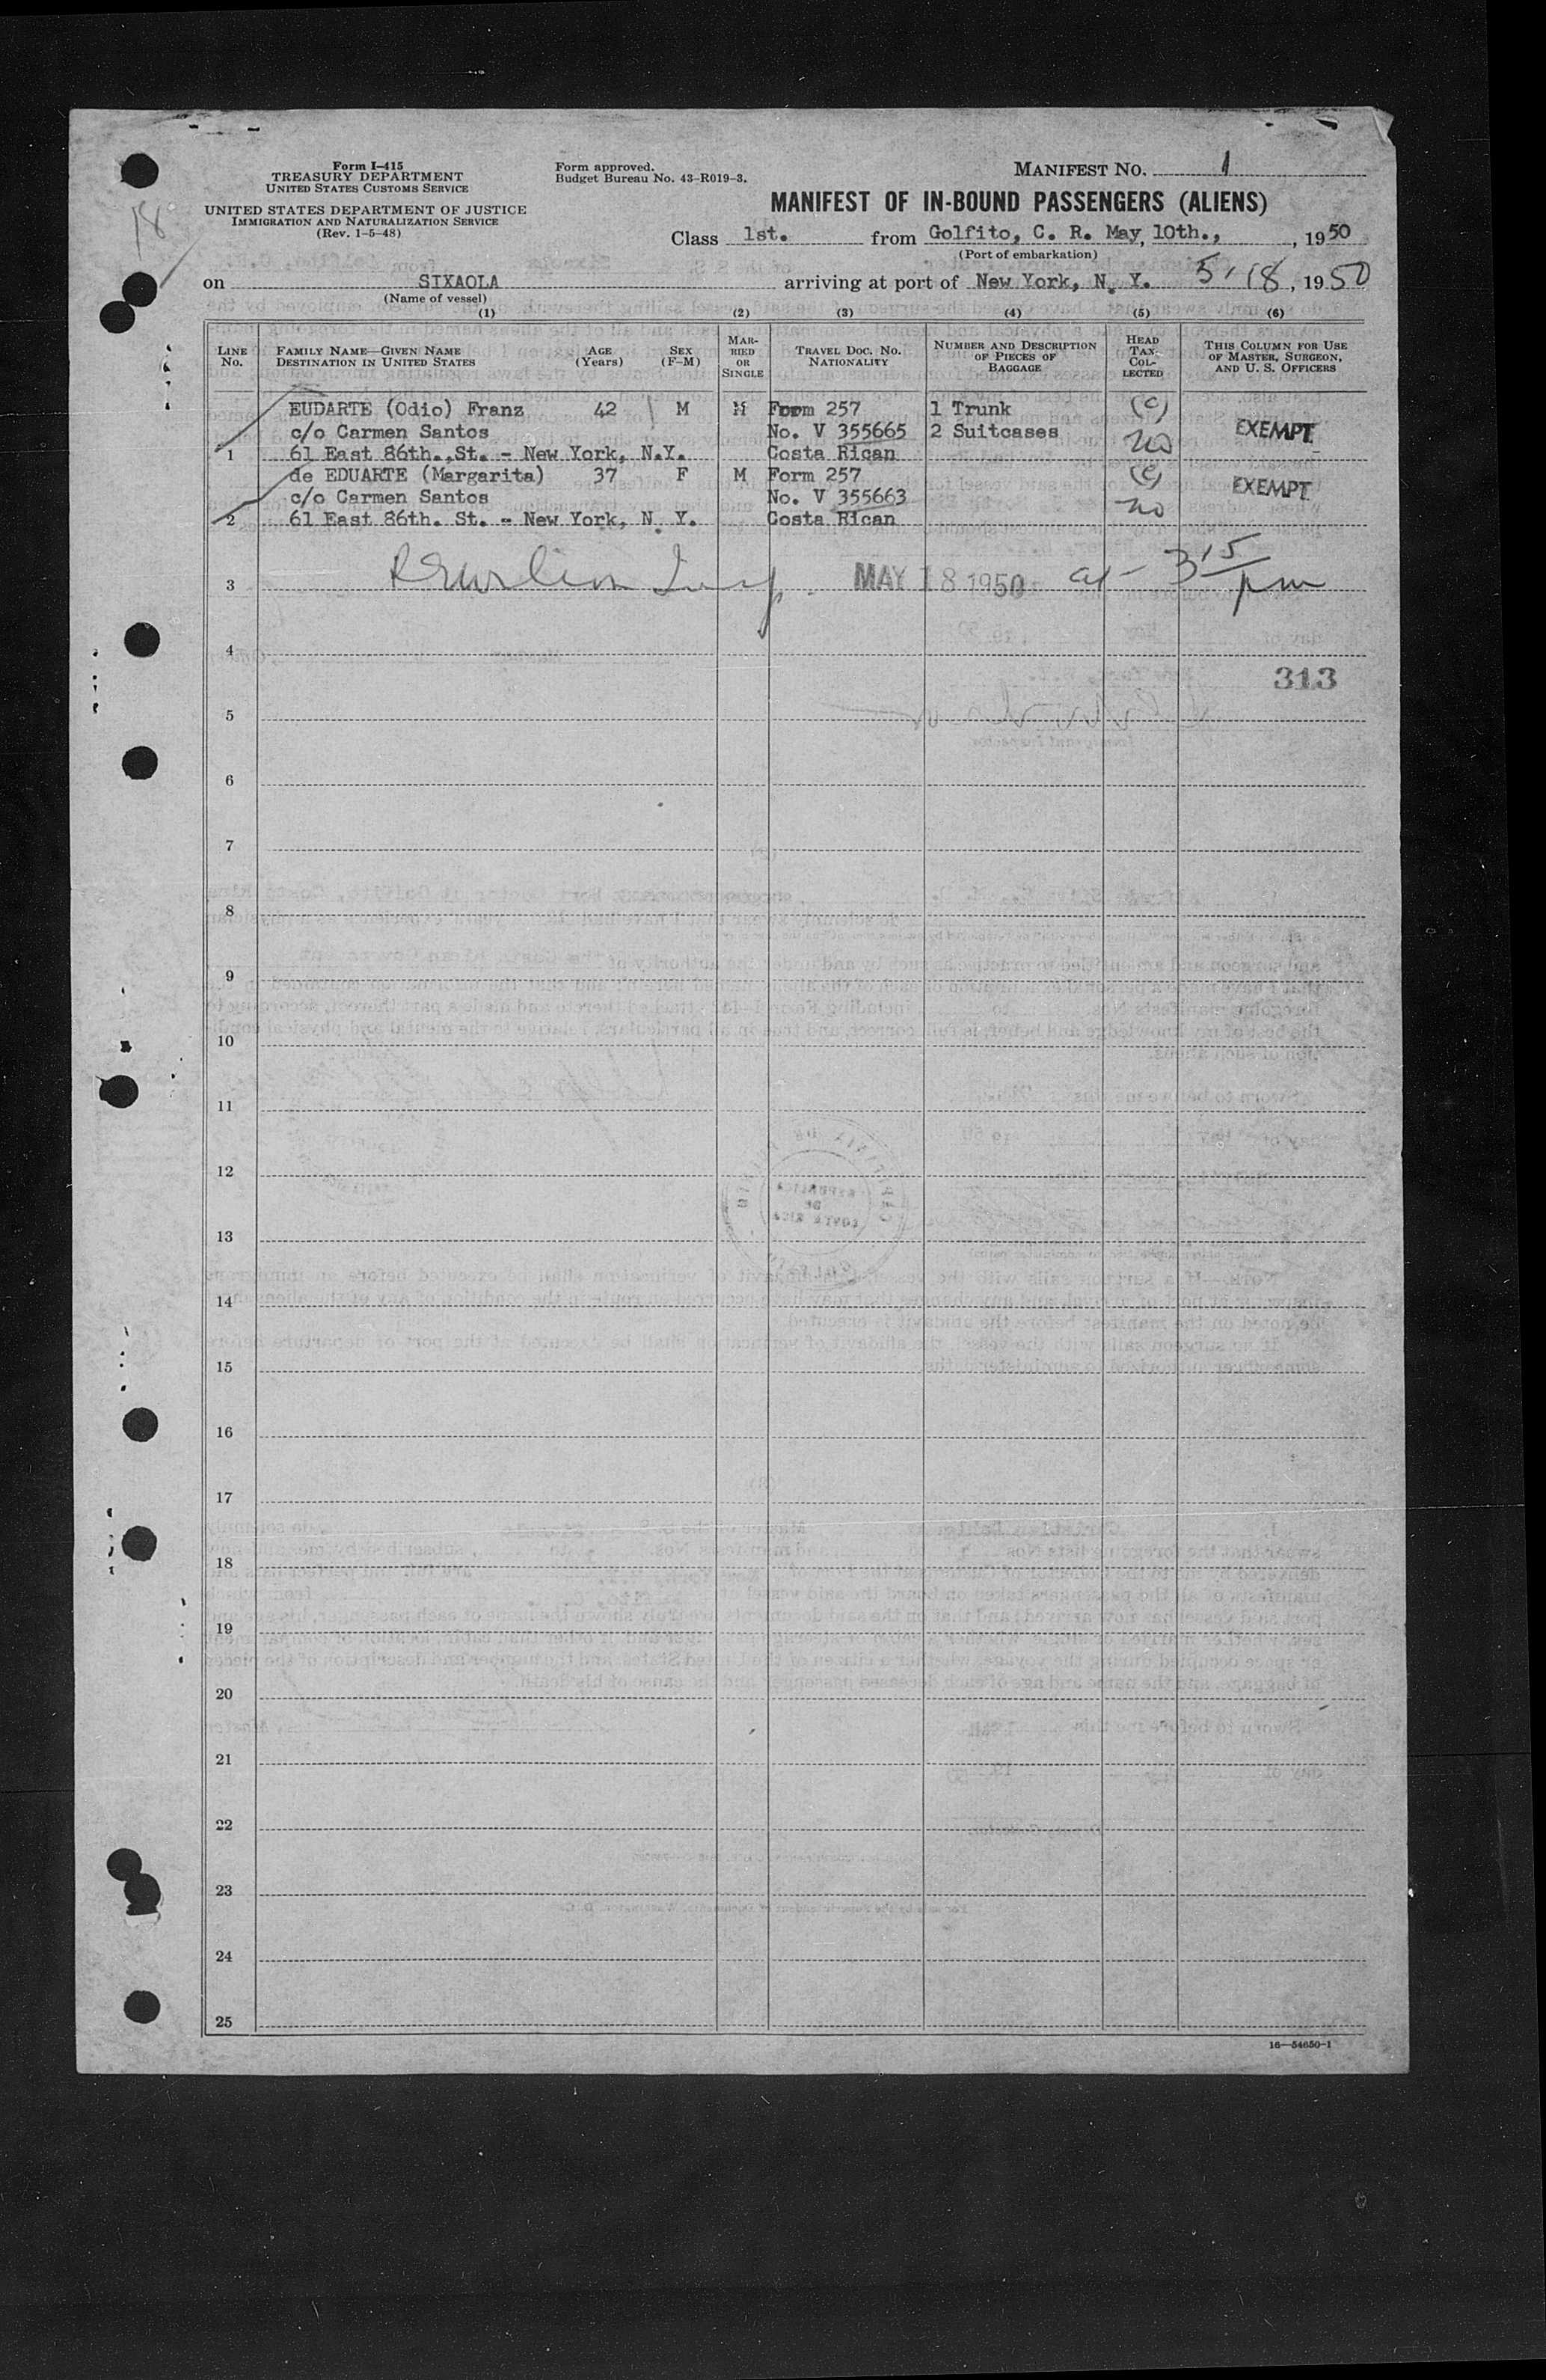 Form I-415
TREASURY DEPARTMENT
UNITED STATES CUSTOMS SERVICE
UNITED STATES DEPARTMENT OF JUSTICE
IMMIGRATION AND NATURALIZATION SERVICE
(Rev. 1-5-48)
Form approved.
Budget Bureau No. 43-R019-3.
MANIFEST NO. 1
MANIFEST OF IN-BOUND PASSENGERS (ALIENS)
Class 1st. from Golfito, C. R. May, 10th., , 1950
(Port of embarkation)
18
on SIXAOLA arriving at port of New York, N. Y. 5-18, 1950
(Name of vessel)
(1) (2) (3) (4) (5) (6)
LINE No. FAMILY NAME—GIVEN NAME DESTINATION IN UNITED STATES AGE (Years) SEX (F-M) MARRIED OR SINGLE TRAVEL DOC. NO. NATIONALITY NUMBER AND DESCRIPTION OF PIECES OF BAGGAGE HEAD TAX COLLECTED THIS COLUMN FOR USE OF MASTER, SURGEON, AND U. S. OFFICERS
EUDARTE (Odio) Franz 42 M M Form 257 1 Trunk (c)
c/o Carmen Santos No. V 355665 2 Suitcases no EXEMPT
1 61 East 86th. St. - New York, N.Y. Costa Rican
de EDUARTE (Margarita) 37 F M Form 257 (c)
c/o Carmen Santos No. V 355663 no EXEMPT
2 61 East 86th. St. - New York, N. Y. Costa Rican
3 Insp. MAY 18 1950 at 3 15 pm
4
313
5
6
7
8
9
10
11
12
13
14
15
16
17
18
19
20
21
22
23
24
25
16—54650-1